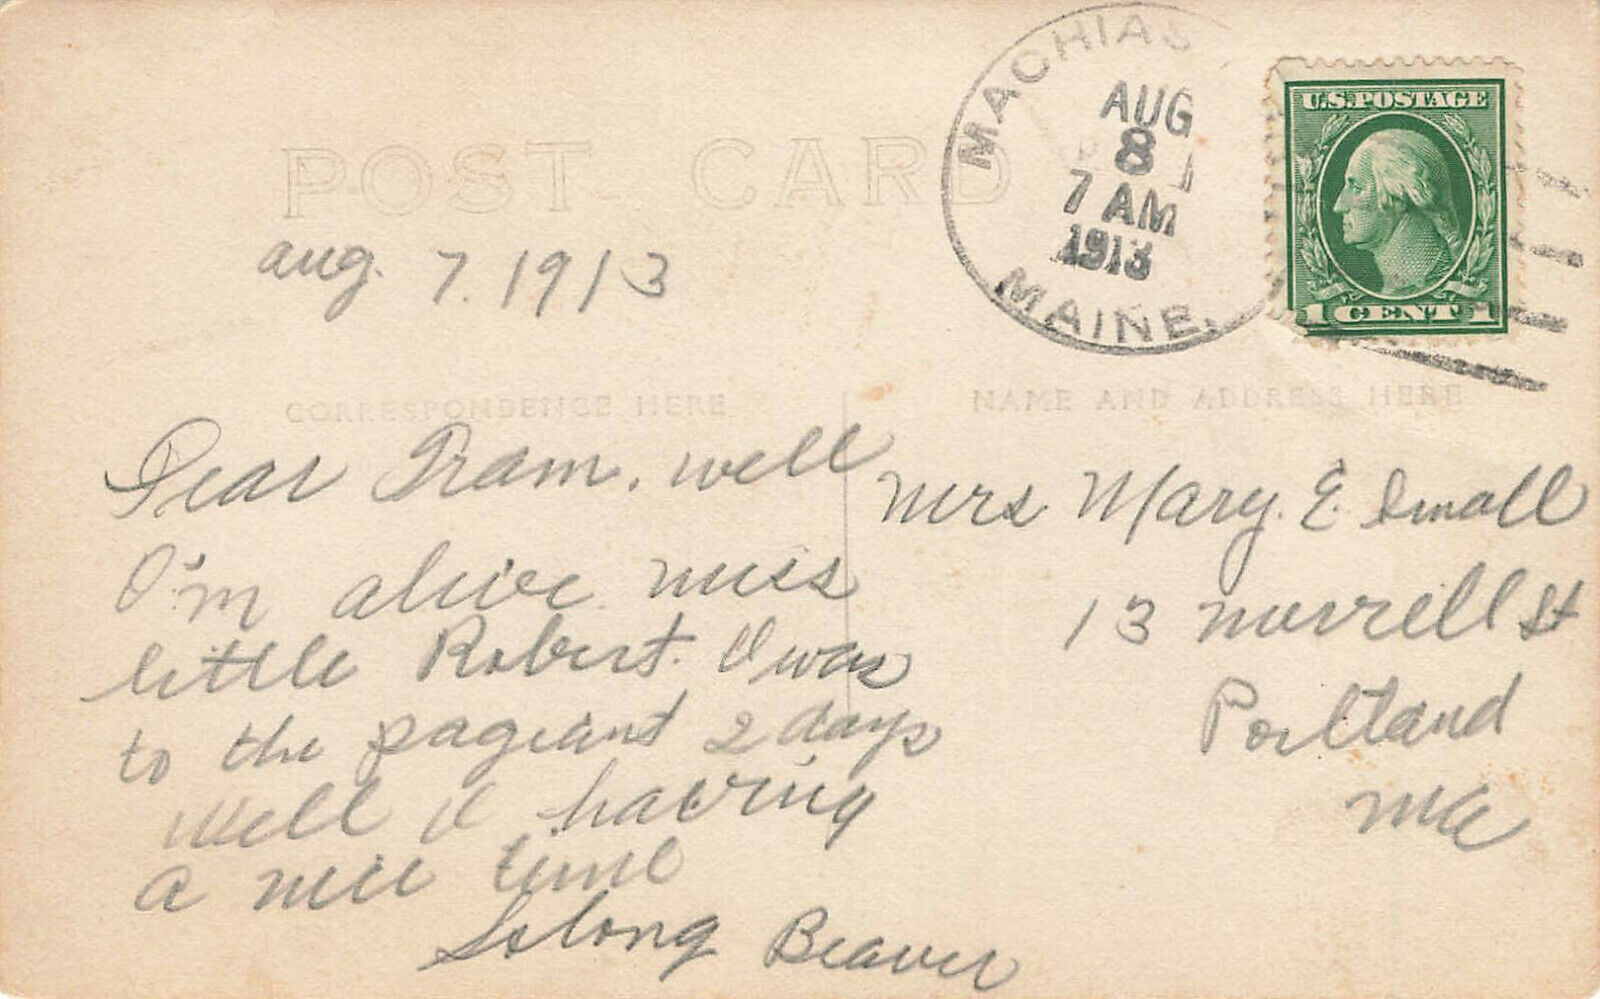 MACHIAS
AUG
8
7 AM
1913
MAINE.
U.S. POSTAGE
1 CENT 1
POST CARD
aug. 7. 1913
CORRESPONDENCE HERE
NAME AND ADDRESS HERE
Dear Gram. well
I'm alive miss
little Robert. I was
to the pageant 2 days
Well I having
a nice time
So long Beaver
Mrs Mary. E. Small
13 Morrell St
Portland
Me